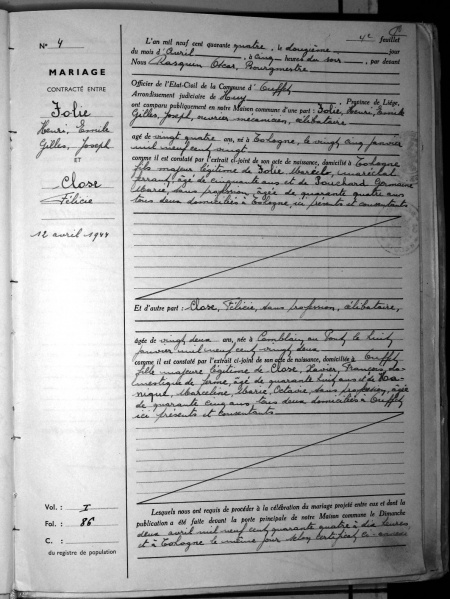 N° 4
MARIAGE
CONTRACTÉ ENTRE
Jolie
Henri, Emile
Gilles, Joseph
ET
Close
Félicie
12 avril 1944
Vol. : I
Fol. : 86
C. :
du registre de population
4e feuillet
L'an mil neuf cent quarante quatre, le douzième jour
du mois d'Avril à cinq heures du soir, par devant
Nous Rasquin Oscar, Bourgmestre
Officier de l'Etat-Civil de la Commune d'Ouffet,
Arrondissement judiciaire de Huy, Province de Liége,
ont comparu publiquement en notre Maison commune d'une part : Jolie, Henri, Emile
Gilles, Joseph, ouvrier mécanicien, célibataire
agé de vingt quatre ans, né à Tohogne, le vingt cinq janvier
mil neuf cent vingt
comme il est constaté par l'extrait ci-joint de son acte de naissance, domicilié à Tohogne
fils majeur légitime de Jolie Marcel, maréchal
ferrant, âgé de cinquante ans et de Germaine
Marie, sans profession, âgée de quarante quatre ans
tous deux domiciliés à Tohogne, ici présents et consentants
Et d'autre part : Close, Félicie, sans profession, célibataire,
âgée de vingt deux ans, née à Comblain au Pont, le huit
janvier mil neuf cent vingt deux
comme il est constaté par l'extrait ci-joint de son acte de naissance, domiciliée à Ouffet
fille majeure légitime de Close, Xavier, François, do-
mestique de ferme, âgé de quarante huit ans et de Ha-
nique, Marceline, Marie, Octavie, sans profession, âgée
de quarante cinq ans tous deux domiciliés à Ouffet
ici présents et consentants
Lesquels nous ont requis de procéder à la célébration du mariage projeté entre eux et dont la
publication a été faite devant la porte principale de notre Maison commune le Dimanche
deux avril mil neuf cent quarante quatre à dix heures
et à Tohogne le même jour selon certificat ci-annexé